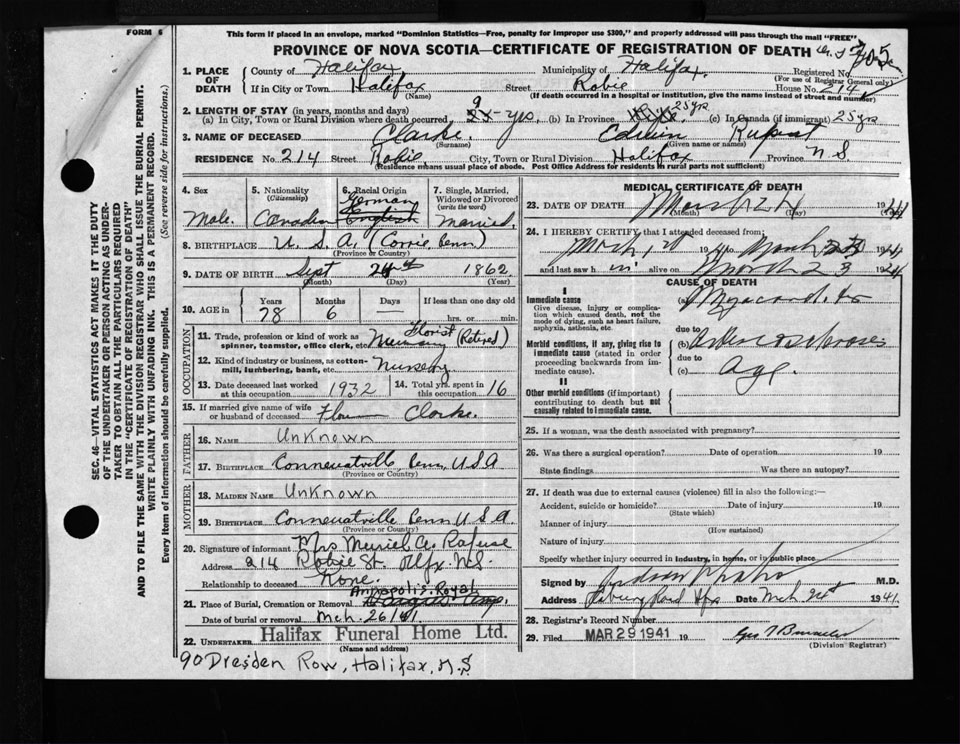 FORM 6
This form if placed in an envelope, marked "Dominion Statistics—Free, penalty for improper use $300," and properly addressed will pass through the mail "FREE"
PROVINCE OF NOVA SCOTIA—CERTIFICATE OF REGISTRATION OF DEATH
1. PLACE OF DEATH
County of Halifax Municipality of Halifax. Registered No.
(For use of Registrar General only)
If in City or Town Halifax Street Robie House No. 214
(Name) (If death occurred in a hospital or institution, give the name instead of street and number)
2. LENGTH OF STAY (in years, months and days)
(a) In City, Town or Rural Division where death occurred 9 yrs, (b) In Province 25 yrs (c) In Canada (if immigrant) 25 yrs
3. NAME OF DECEASED Clarke. Edwin Rupert
(Surname) (Given name or names)
RESIDENCE No. 214 Street Robie, City, Town or Rural Division Halifax Province N S
(Residence means usual place of abode. Post Office Address for Residents in rural parts not sufficient)
4. Sex Male.
5. Nationality (Citizenship) Canadian
6. Racial Origin German English
7. Single, Married, Widowed or Divorced (write the word) Married.
8. BIRTHPLACE U. S. A. (Corrie, Penn)
(Province or Country)
9. DATE OF BIRTH Sept 24th 1862
(Month) (Day) (Year)
10. AGE in Years 78 Months 6 Days — If less than one day old hrs. or min.
OCCUPATION
11. Trade, profession or kind of work as spinner, teamster, office clerk, etc. Florist (Retired)
12. Kind of industry or business, as cotton-mill, lumbering, bank, etc. Nursery
13. Date deceased last worked at this occupation 1932 14. Total yrs. spent in this occupation 16
15. If married give name of wife or husband of deceased Clarke.
FATHER
16. NAME Unknown
17. BIRTHPLACE Conneuatville, Penn, USA
(Province or Country)
MOTHER
18. MAIDEN NAME Unknown
19. BIRTHPLACE Conneuatville Penn U.S.A.
(Province or Country)
20. Signature of informant Mrs Muriel C. Rafuse
Address 214 Robie St. Hfx N.S.
Relationship to deceased None.
21. Place of Burial, Cremation or Removal Annapolis Royal
Date of burial or removal Mch. 26/41
22. UNDERTAKER Halifax Funeral Home Ltd.
(Name and address)
90 Dresden Row, Halifax, N.S
MEDICAL CERTIFICATE OF DEATH
23. DATE OF DEATH March 24 1941
(Month) (Day) (Year)
24. I HEREBY CERTIFY, that I attended deceased from:
Mch, 1st 1941 to March 23 1941
and last saw h im alive on March 23 1941
CAUSE OF DEATH
I
Immediate cause
Give disease, injury or complication which caused death, not the mode of dying, such as heart failure, asphyxia, asthenia, etc.
(a) Myocarditis
due to
Morbid conditions, if any, giving rise to immediate cause (stated in order proceeding backwards from immediate cause).
(b) Arteriosclerosis
due to
(c) Age.
II
Other morbid conditions (if important) contributing to death but not causally related to immediate cause.
25. If a woman, was the death associated with pregnancy?
26. Was there a surgical operation? Date of operation 19
State findings Was there an autopsy?
27. If death was due to external causes (violence) fill in also the following:—
Accident, suicide or homicide? Date of injury 19
(State which)
Manner of injury
(How sustained)
Nature of injury
Specify whether injury occurred in industry, in home, or in public place
Signed by M.D.
Address Road Hfx Date Mch 24th 1941.
28. Registrar's Record Number
29. Filed MAR 29 1941 19
(Division Registrar)
SEC. 46—VITAL STATISTICS ACT MAKES IT THE DUTY
OF THE UNDERTAKER OR PERSON ACTING AS UNDER-
TAKER TO OBTAIN ALL THE PARTICULARS REQUIRED
IN THE "CERTIFICATE OF REGISTRATION OF DEATH"
AND TO FILE THE SAME WITH THE DIVISION REGISTRAR WHO SHALL ISSUE THE BURIAL PERMIT.
WRITE PLAINLY WITH UNFADING INK. THIS IS A PERMANENT RECORD.
Every item of information should be carefully supplied. (See reverse side for instructions.)